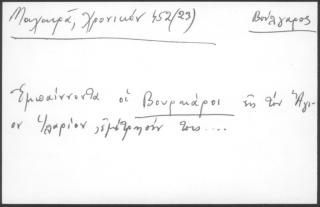 Μαχαιρά, Χρονικόν 452/23)
Βούλγαρος
Ἐμπαίννοντα οἱ Βουρκάροι εἰς τὸν Ἅγι-
ον Ἱλαρίον, ἐμέτρησάν τους....